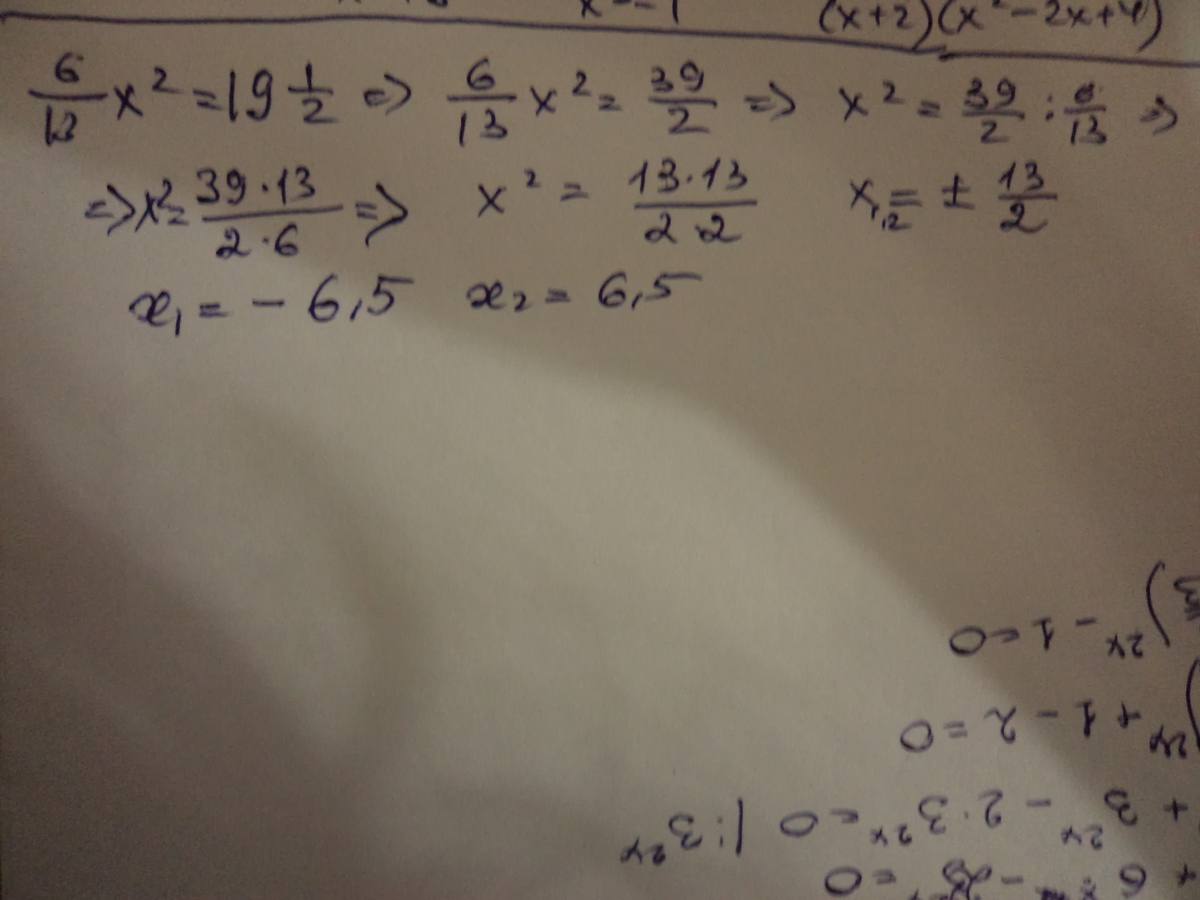 x = -1 (x+2)(x²-2x+4)
6/13 x² = 19 1/2 => 6/13 x² = 39/2 => x² = 39/2 : 6/13 =>
=> x² = 39·13/2·6 => x² = 13·13/2·2 x₁,₂ = ± 13/2
x₁ = - 6,5 x₂ = 6,5
+ 3²ˣ - 2·3²ˣ = 0 |:3²ˣ
)²ˣ + 1 - 2 = 0
)²ˣ - 1 = 0